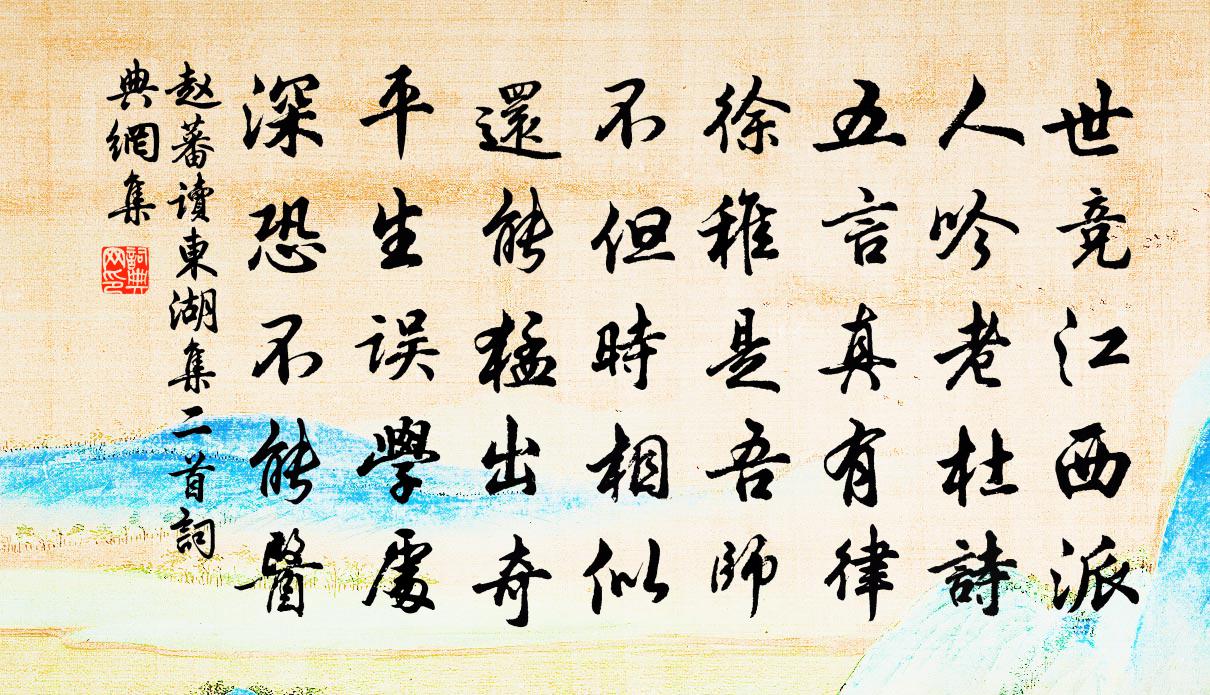 世竞江西派
人吟老杜詩
五言真有律
徐稚是吾師
不但時相似
還能猛出奇
平生误學處
深恐不能醫
赵蕃讀東湖集二首詞
典網集
詞典
网印